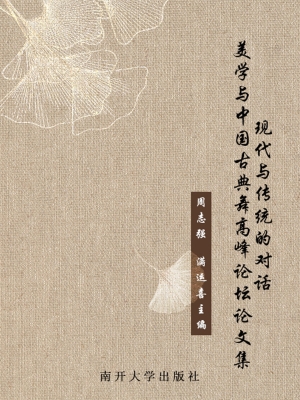 现代与传统的对话
美学与中国古典舞高峰论坛论文集
周志强 满运喜主编
南开大学出版社